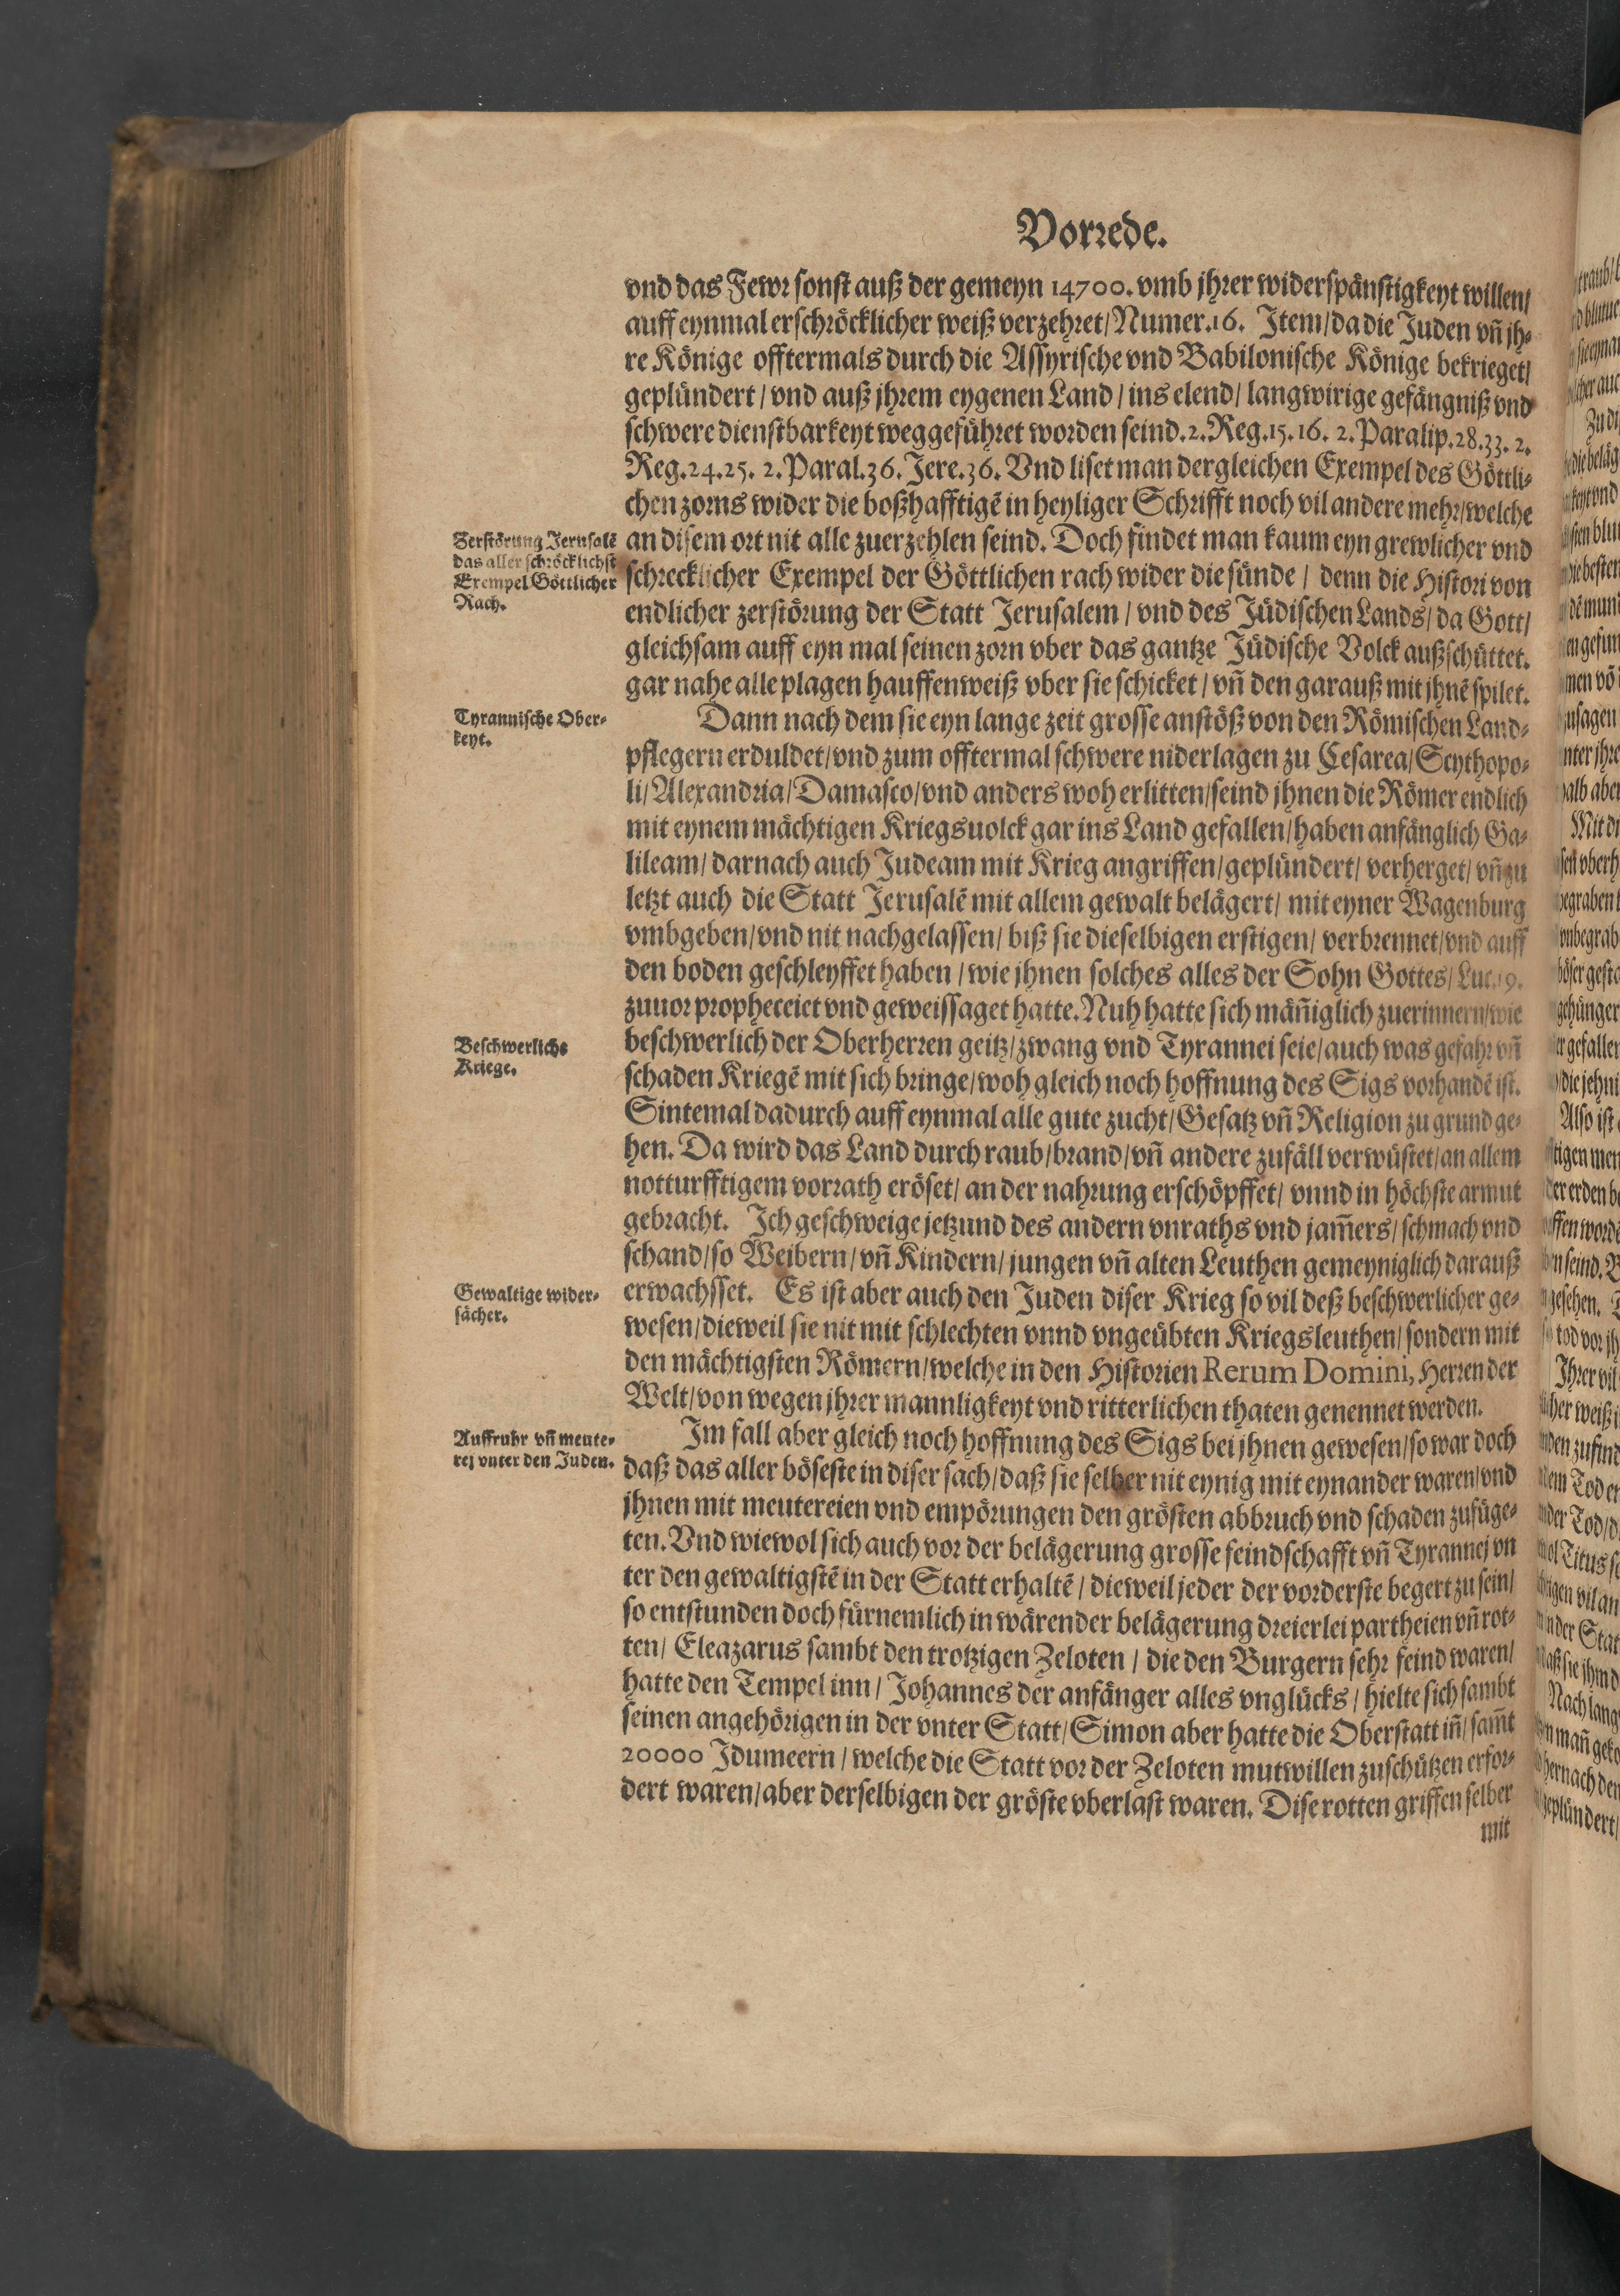 Vorrede.
vnd das Fewr sonst auß der gemeyn 14700. vmb jhrer widerspänstigkeyt willen/
auff eynmal erschröcklicher weiß verzehret/ Numer.16. Item/ da die Juden vñ jh-
re Könige offtermals durch die Assyrische vnd Babilonische Könige bekrieget/
geplündert/ vnd auß jhrem eygenen Land/ ins elend/ langwirige gefängniß vnd
schwere dienstbarkeyt weggeführet worden seind. 2. Reg.15.16. 2. Paralip.28.33. 2.
Reg.24.25. 2. Paral.36. Jere.36. Vnd liset man dergleichen Exempel des Göttli-
chen zorns wider die boßhafftigē in heyliger Schrifft noch vil andere mehr/ welche
Zerstörung Jerusalē
das aller schröcklichst
Exempel Göttlicher
Rach.
an disem ort nit alle zuerzehlen seind. Doch findet man kaum eyn grewlicher vnd
schrecklicher Exempel der Göttlichen rach wider die sünde/ denn die Histori von
endlicher zerstörung der Statt Jerusalem/ vnd des Jüdischen Lands/ da Gott/
gleichsam auff eyn mal seinen zorn vber das gantze Jüdische Volck außschüttet.
gar nahe alle plagen hauffenweiß vber sie schicket/ vñ den garauß mit jhnē spilet.
Tyrannische Ober-
keyt.
Dann nach dem sie eyn lange zeit grosse anstöß von den Römischen Land-
pflegern erduldet/ vnd zum offtermal schwere niderlagen zu Cesarea/ Scythopo-
li/ Alexandria/ Damasco/ vnd anders woh erlitten/ seind jhnen die Römer endlich
mit eynem mächtigen Kriegsuolck gar ins Land gefallen/ haben anfänglich Ga-
lileam/ darnach auch Judeam mit Krieg angriffen/ geplündert/ verherget/ vñ zu
letzt auch die Statt Jerusalē mit allem gewalt belägert/ mit eyner Wagenburg
vmbgeben/ vnd nit nachgelassen/ biß sie dieselbigen erstigen/ verbrennet/ vnd auff
den boden geschleyffet haben/ wie jhnen solches alles der Sohn Gottes/ Luc.19.
zuuor propheteiet vnd geweissaget hatte. Nuh hatte sich mäñiglich zuerinnern/ wie
Beschwerliche
Kriege.
beschwerlich der Oberherren geitz/ zwang vnd Tyrannei seie/ auch was gefahr vñ
schaden Kriegē mit sich bringe/ woh gleich noch hoffnung des Sigs vorhandē ist.
Sintemal dadurch auff eynmal alle gute zucht/ Gesatz vñ Religion zu grund ge-
hen. Da wird das Land durch raub/ brand/ vñ andere zufäll verwüstet/ an allem
notturfftigem vorrath eröset/ an der nahrung erschöpffet/ vnnd in höchste armut
gebracht. Ich geschweige jetzund des andern vnraths vnd jam̃ers/ schmach vnd
schand/ so Weibern/ vñ Kindern/ jungen vñ alten Leuthen gemeyniglich darauß
Gewaltige wider-
sächer.
erwachsset. Es ist aber auch den Juden diser Krieg so vil deß beschwerlicher ge-
wesen/ dieweil sie nit mit schlechten vnnd vngeübten Kriegsleuthen/ sondern mit
den mächtigsten Römern/ welche in den Historien Rerum Domini, Herren der
Welt/ von wegen jhrer mannligkeyt vnd ritterlichen thaten genennet werden.
Auffruhr vñ meute-
rej vnter den Juden.
Im fall aber gleich noch hoffnung des Sigs bei jhnen gewesen/ so war doch
daß das aller böseste in diser sach/ daß sie selber nit eynig mit eynander waren/ vnd
jhnen mit meutereien vnd empörungen den grösten abbruch vnd schaden zufüge-
ten. Vnd wiewol sich auch vor der belägerung grosse feindschafft vñ Tyrannej vn
ter den gewaltigstē in der Statt erhaltē/ dieweil jeder der vorderste begert zu sein/
so entstunden doch fürnemlich in wärender belägerung dreierlei partheien vñ rot-
ten/ Eleazarus sambt den trotzigen Zeloten/ die den Burgern sehr feind waren/
hatte den Tempel inn/ Johannes der anfänger alles vnglücks/ hielte sich sambt
seinen angehörigen in der vnter Statt/ Simon aber hatte die Oberstatt iñ/ sam̃t
20000 Idumeern/ welche die Statt vor der Zeloten mutwillen zuschützen erfor-
dert waren/ aber derselbigen der gröste vberlast waren. Dise rotten griffen selber
mit